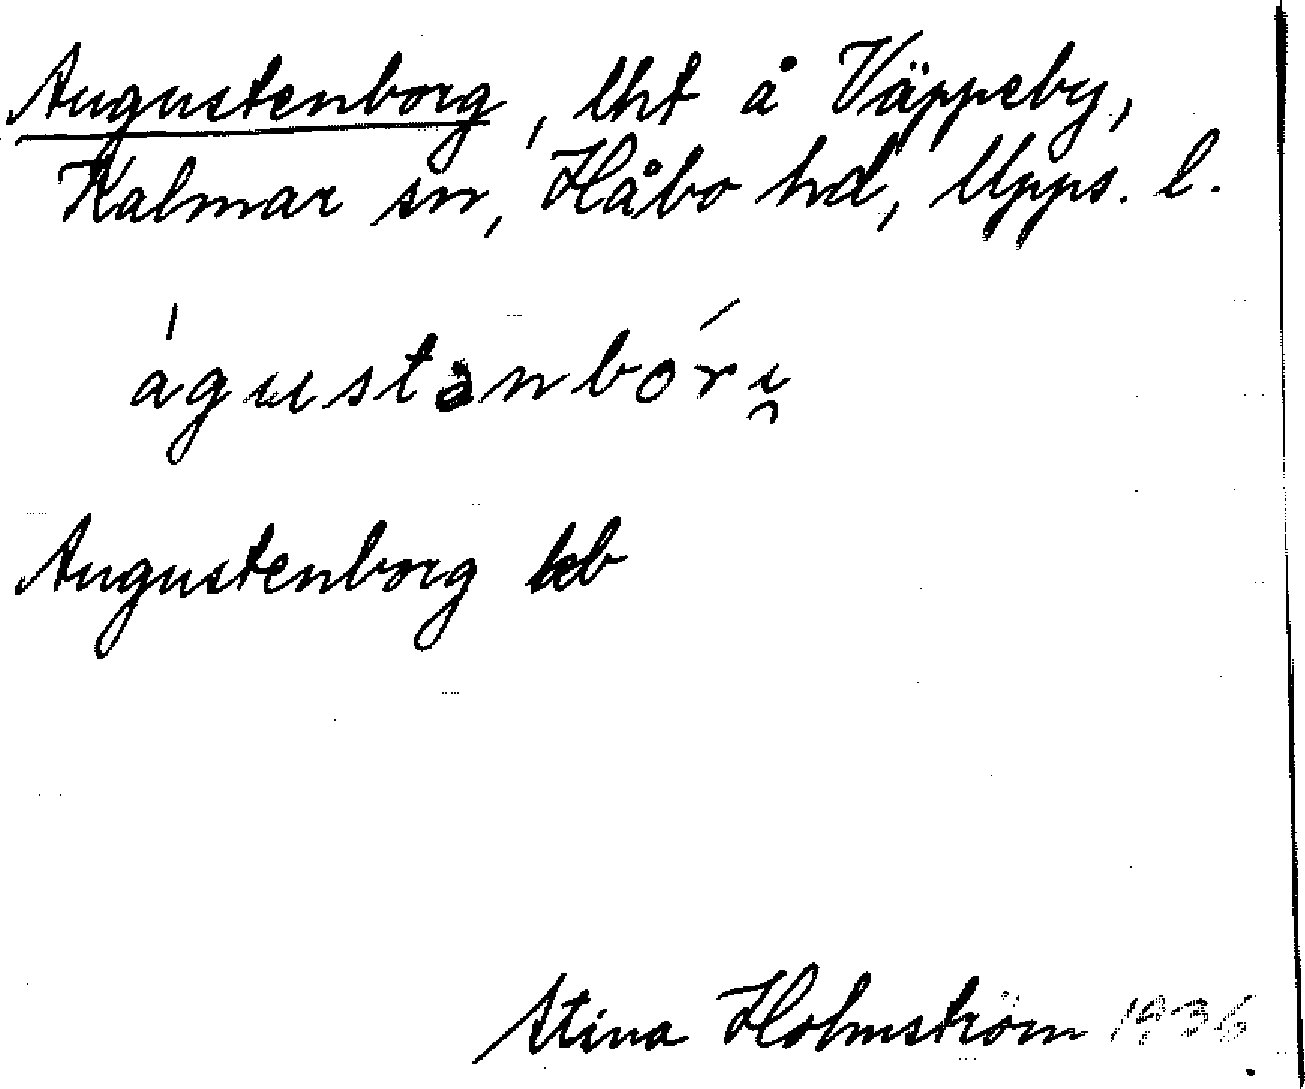 Augustenborg, lht å Väppeby,
Kalmar sn, Håbo hd, Upps. l.
águstanbóri̯
Augustenborg kb
Stina Holmström 1936